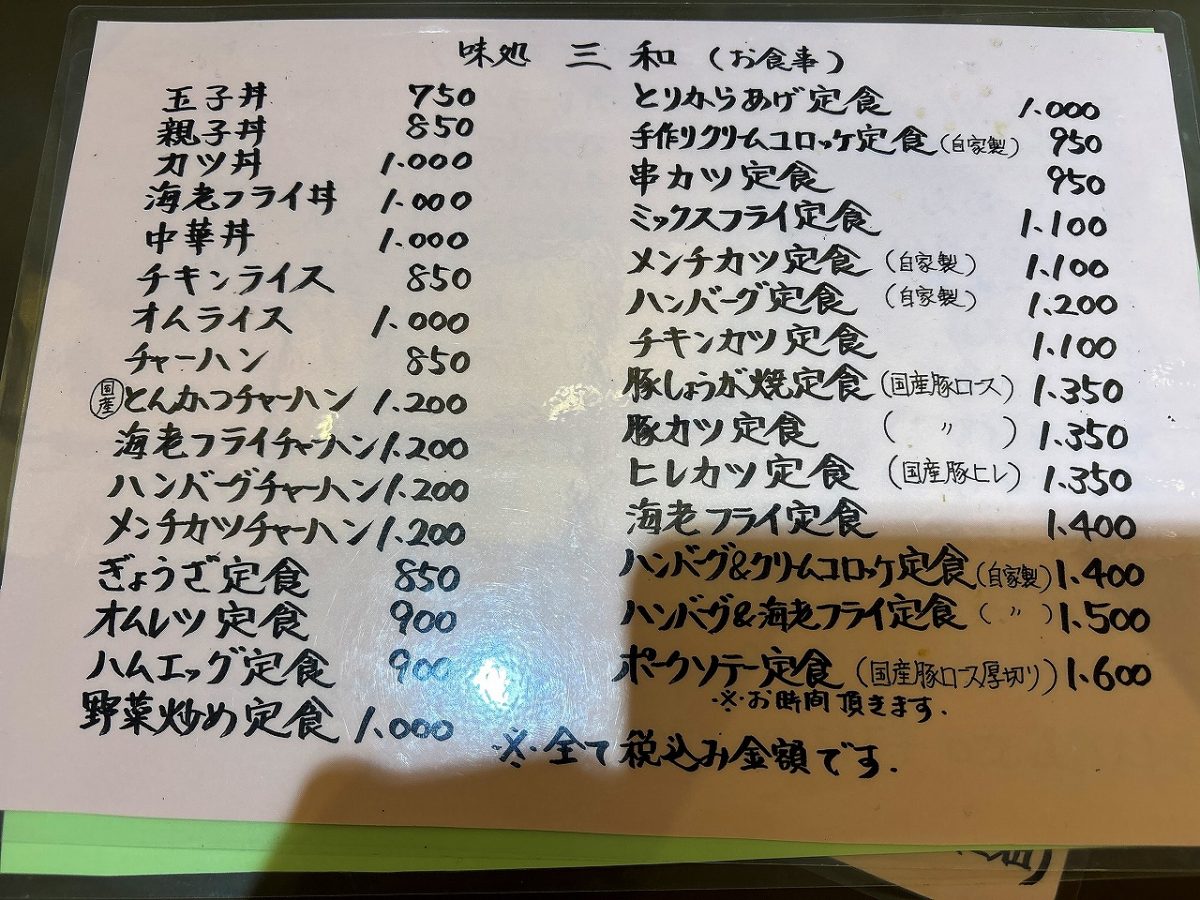 味処 三和(お食事)
玉子丼 750
親子丼 850
カツ丼 1.000
海老フライ丼 1.000
中華丼 1.000
チキンライス 850
オムライス 1.000
チャーハン 850
国産 とんかつチャーハン 1.200
海老フライチャーハン 1.200
ハンバーグチャーハン 1.200
メンチカツチャーハン 1.200
ぎょうざ定食 850
オムレツ定食 900
ハムエッグ定食 900
野菜炒め定食 1.000
とりからあげ定食 1.000
手作りクリームコロッケ定食(自家製) 950
串カツ定食 950
ミックスフライ定食 1.100
メンチカツ定食(自家製) 1.100
ハンバーグ定食(自家製) 1.200
チキンカツ定食 1.100
豚しょうが焼定食(国産豚ロース) 1.350
豚カツ定食(〃) 1.350
ヒレカツ定食(国産豚ヒレ) 1.350
海老フライ定食 1.400
ハンバーグ&クリームコロッケ定食(自家製) 1.400
ハンバグ&海老フライ定食(〃) 1.500
ポークソテー定食(国産豚ロース厚切り) 1.600
※お時間頂きます.
※全て税込み金額です.